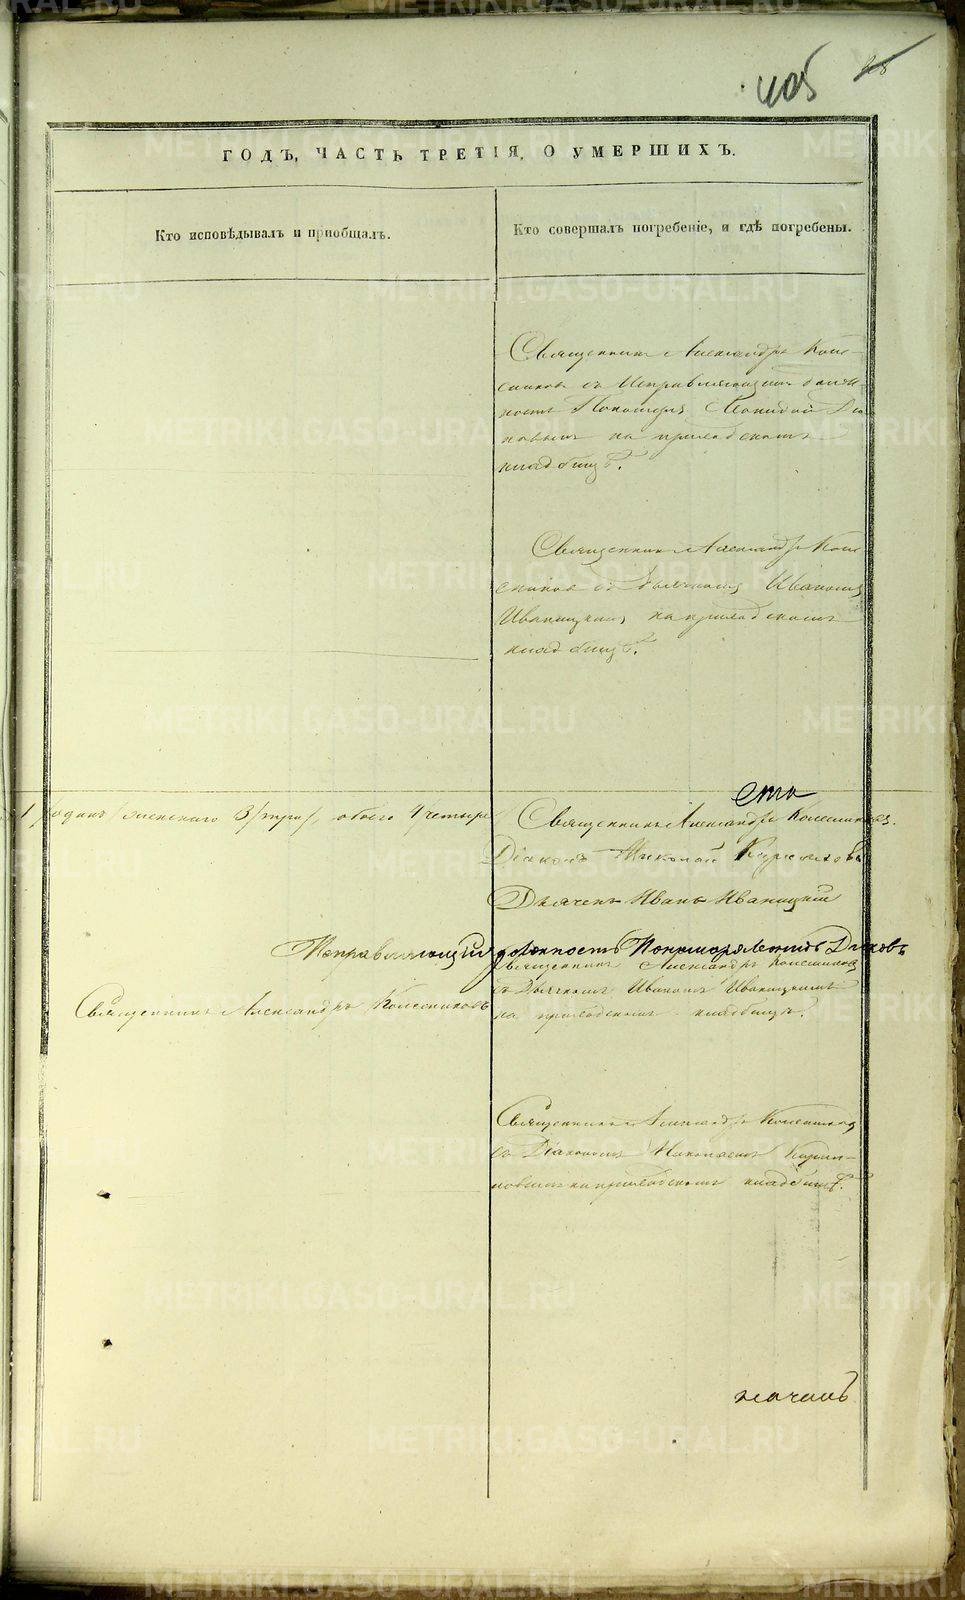 405 48
ГОДЪ, ЧАСТЬ ТРЕТІЯ, О УМЕРШИХЪ.
Кто исповѣдывалъ и пріобщалъ.
Кто совершалъ погребеніе, и гдѣ погребены.
Священникъ Александръ Коле-
сников съ Исправляющимъ должн-
ность Пономаря Леонидой Дья
ковымъ на приходскомъ
кладбищѣ.
Священникъ Александръ Коле
сников съ Дьячкомъ Иваномъ
Иваницкимъ на приходскомъ
кладбищѣ.
ста
1 /одинъ/ женскаго 3/три/, обоего 4 четыре
Священникъ Александръ Колесниковъ.
Діаконъ Николай
Дьячекъ Иванъ Иваницкій
Исправляющій должность Пономаря Леонидъ Дьяковъ
Священникъ Александръ Колесниковъ
Священникъ Александръ Колесников
съ Дьячкомъ Иваномъ Иваницкимъ
на приходскомъ кладбищѣ.
Священникъ Александръ Колесников
съ Діакономъ Николаемъ
на приходскомъ кладбищѣ.
METRIKI.GASO-URAL.RU